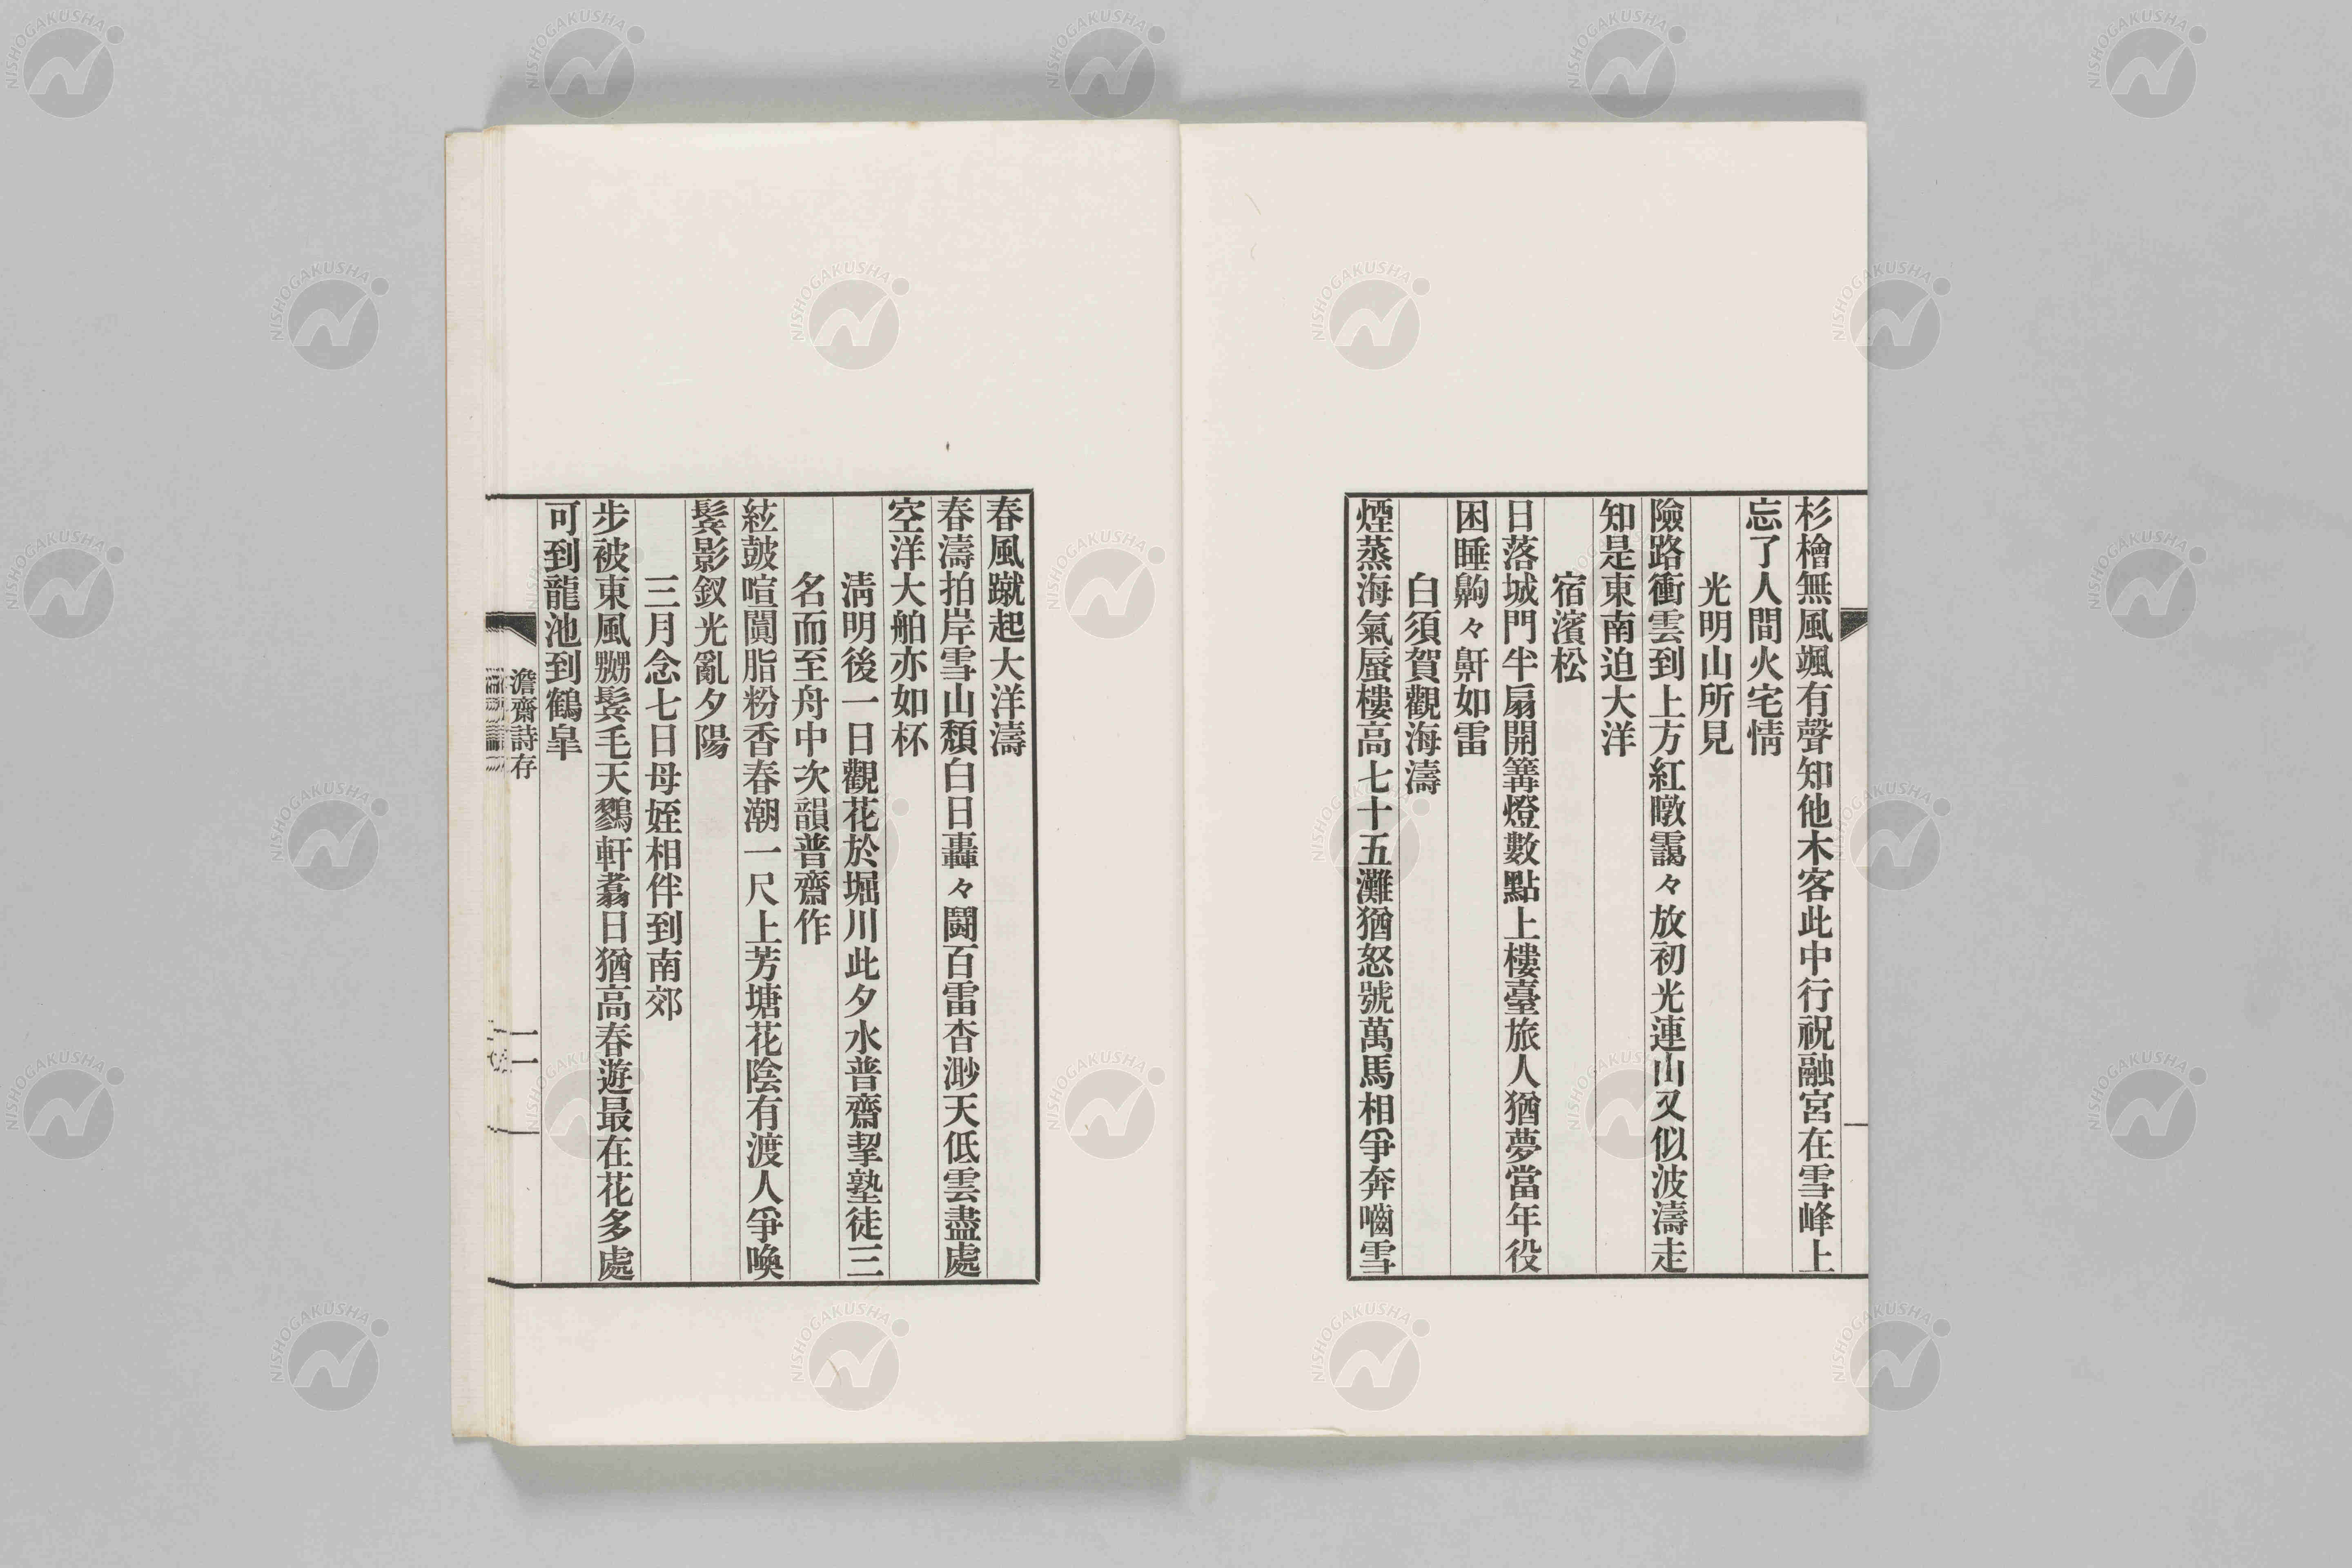 杉檜無風颯有聲知他木客此中行祝融宮在雪峰上
忘了人間火宅情
光明山所見
險路衝雲到上方紅暾靄々放初光連山又似波濤走
知是東南迫大洋
宿濱松
日落城門半扇開篝燈數點上樓臺旅人猶夢當年役
困睡齁々鼾如雷
白須賀觀海濤
煙蒸海氣蜃樓高七十五灘猶怒號萬馬相爭奔嚙雪
春風蹴起大洋濤
春濤拍岸雪山頽白日轟々鬪百雷杳渺天低雲盡處
空洋大舶亦如杯
淸明後一日觀花於堀川此夕水普齋挈塾徒三
名而至舟中次韻普齋作
絃皷喧闐脂粉香春潮一尺上芳塘花陰有渡人爭喚
鬂影釵光亂夕陽
三月念七日母姪相伴到南郊
步被東風嬲鬂毛天鷚軒翥日猶高春遊最在花多處
可到龍池到鶴皐
澹齋詩存
二
NISHOGAKUSHA